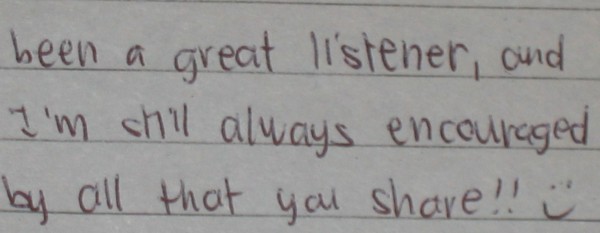 been a great listener, and
I'm still always encouraged
by all that you share!! :)